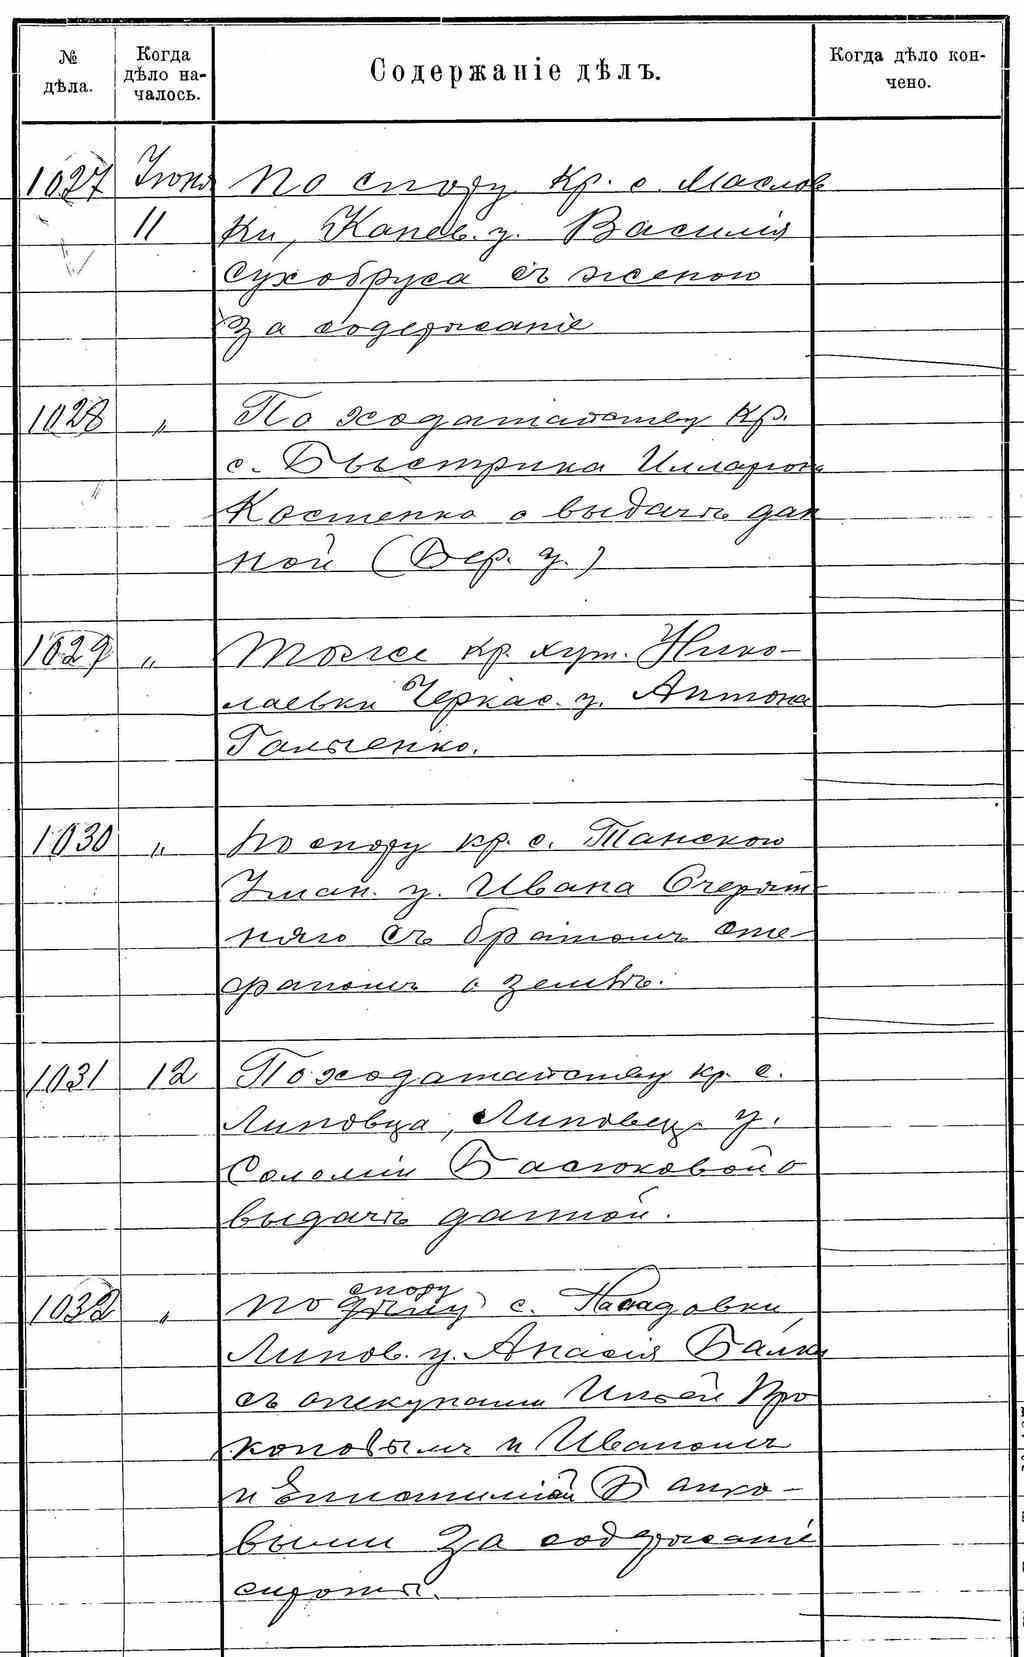 № дѣла. Когда дѣло на-чалось. Содержаніе дѣлъ. Когда дѣло кон-чено.
1027 Іюня По спору кр. с. Маслов
11 ки, Канев. у. Василія
Сухобруса съ женою
за содержаніе
1028 " По ходатайству кр.
с. Быстрика Иллариона
Костенко о выдачѣ дан
ной (Бер. у.)
1029 " Тоже кр. хут. Нико-
лаевки Черкас. у. Антона
Гальченко.
1030 " По спору кр. с. Танскою
Уман. у. Ивана Очерят-
няго съ братомъ Сте-
фаномъ о землѣ.
1031 12 По ходатайству кр. с.
Липовца, Липовец. у.
Соломіи Басюковой о
выдачѣ данной.
1032 " По спору с.
Липов. у. Анасія
съ опекунами Про
коповымъ и Иваномъ
и
выми за содержаніе
сироты.